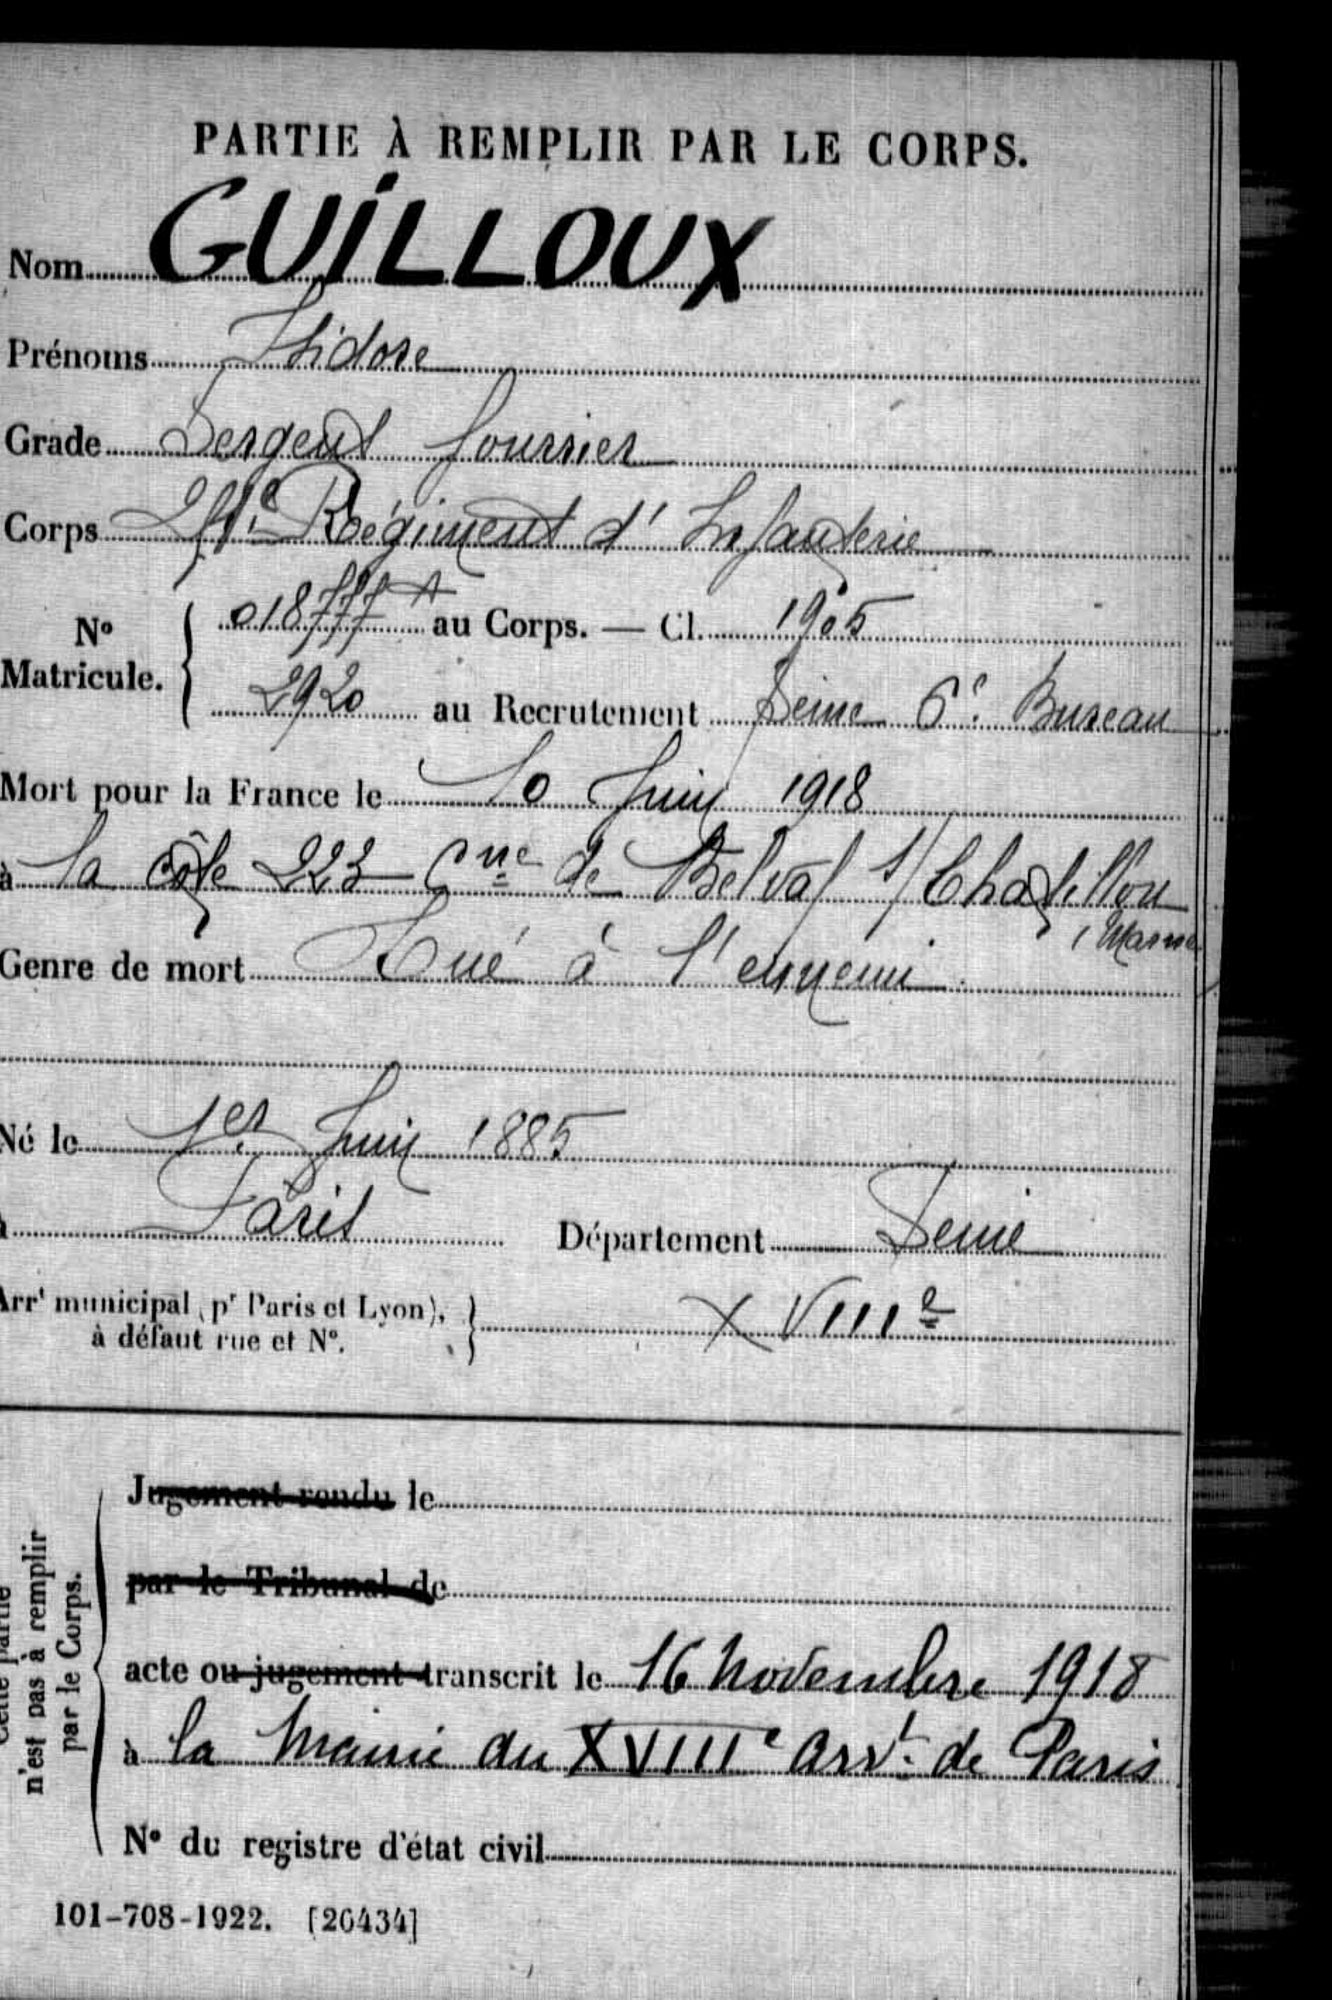 PARTIE À REMPLIR PAR LE CORPS.
Nom GUILLOUX
Prénoms Isidore
Grade Sergent fourrier
Corps Régiment d'Infanterie
N° Matricule. 018777 A au Corps. — Cl. 1905
2920 au Recrutement Seine 6e Bureau
Mort pour la France le 10 Juin 1918
à la côte 223 Cne de Belval s/ Chatillon
(Marne
Genre de mort Tué à l'ennemi
Né le 1er Juin 1885
à Paris Département Seine
Arrt municipal (pr Paris et Lyon), à défaut rue et N°. XVIIIe
Cette partie n'est pas à remplir par le Corps.
Jugement rendu le
par le Tribunal de
acte ou jugement transcrit le 16 Novembre 1918
à la Mairie du XVIIIe arrt de Paris
N° du registre d'état civil
101-708-1922. [26434]